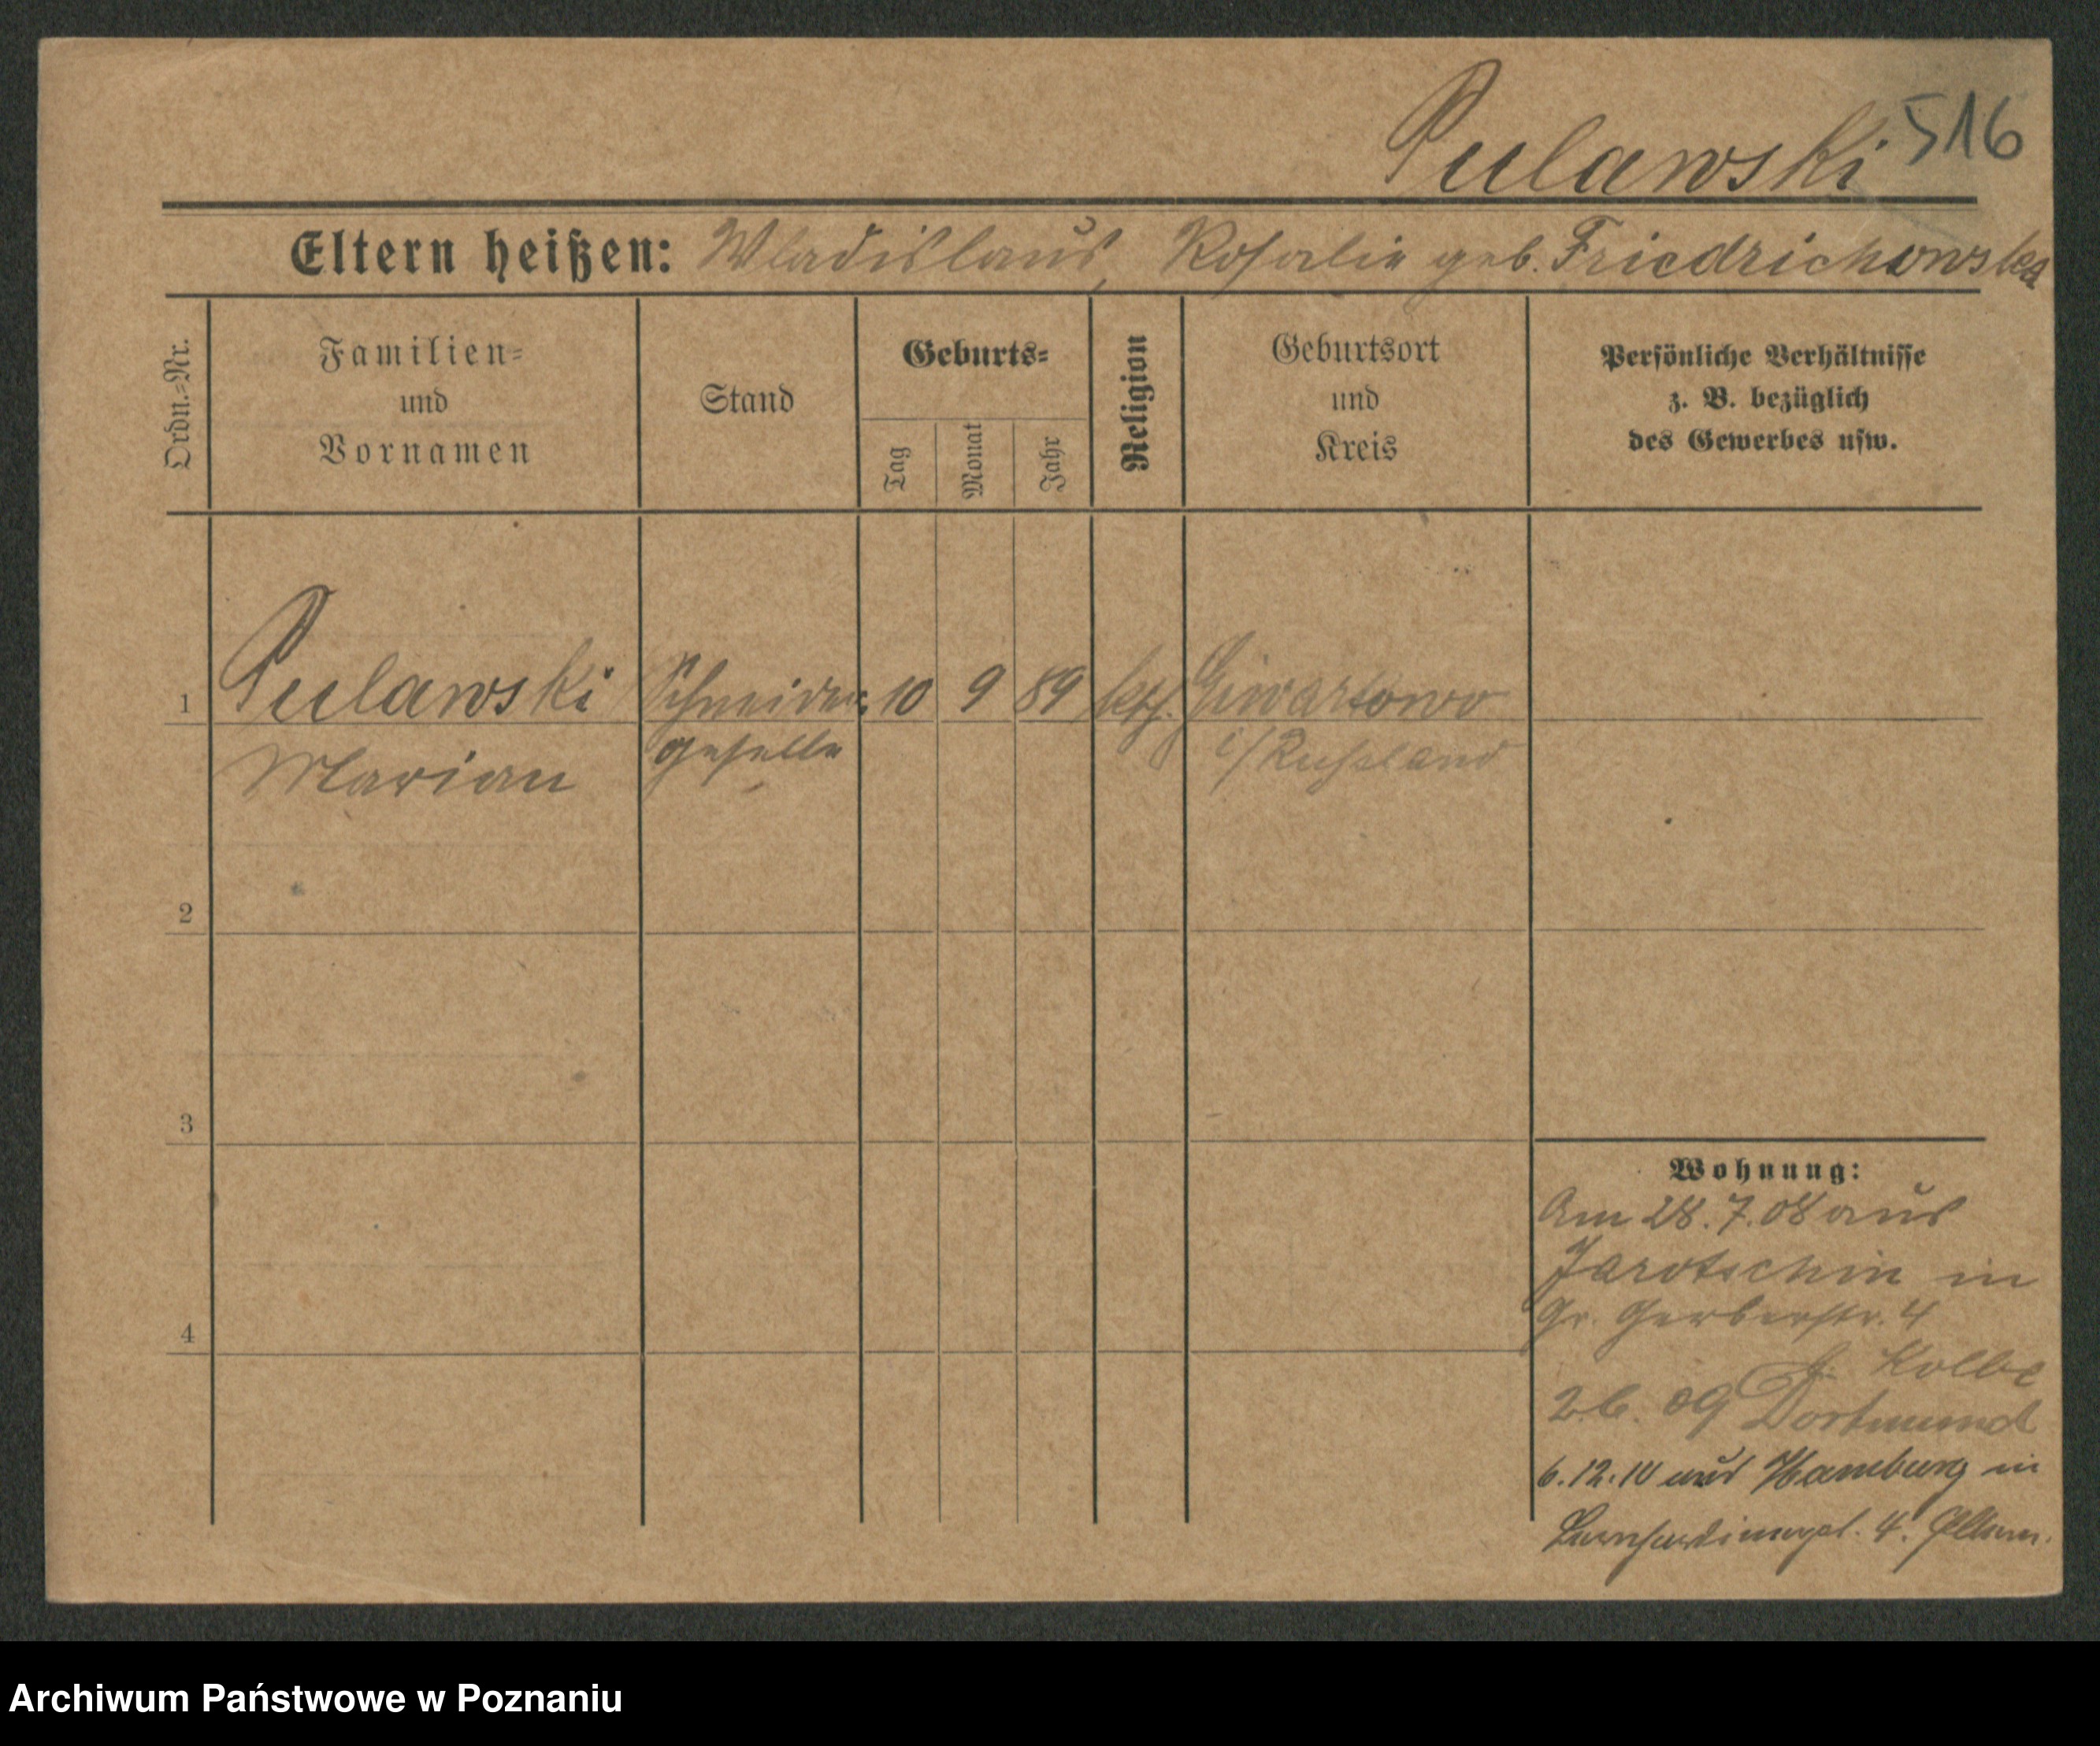 Pulawski 516
Eltern heißen: Wladislaus, Rosalie geb. Friedrichowska
Ordn.=Nr.
Familien=
und
Vornamen
Stand
Geburts=
Tag
Monat
Jahr
Religion
Geburtsort
und
Kreis
Persönliche Verhältnisse
z. B. bezüglich
des Gewerbes usw.
1 Pulawski Schneider= 10 9 89 kth. Giwartowo
Marian geselle i/Russland
2
3
4
Wohnung:
Am 28.7.08 aus
Jarotschin in
Gr. Gerberstr. 4
Kolbe
2.6. 09 Dortmund
6.12.10 aus Hamburg in
4. Eltern.
Archiwum Państwowe w Poznaniu